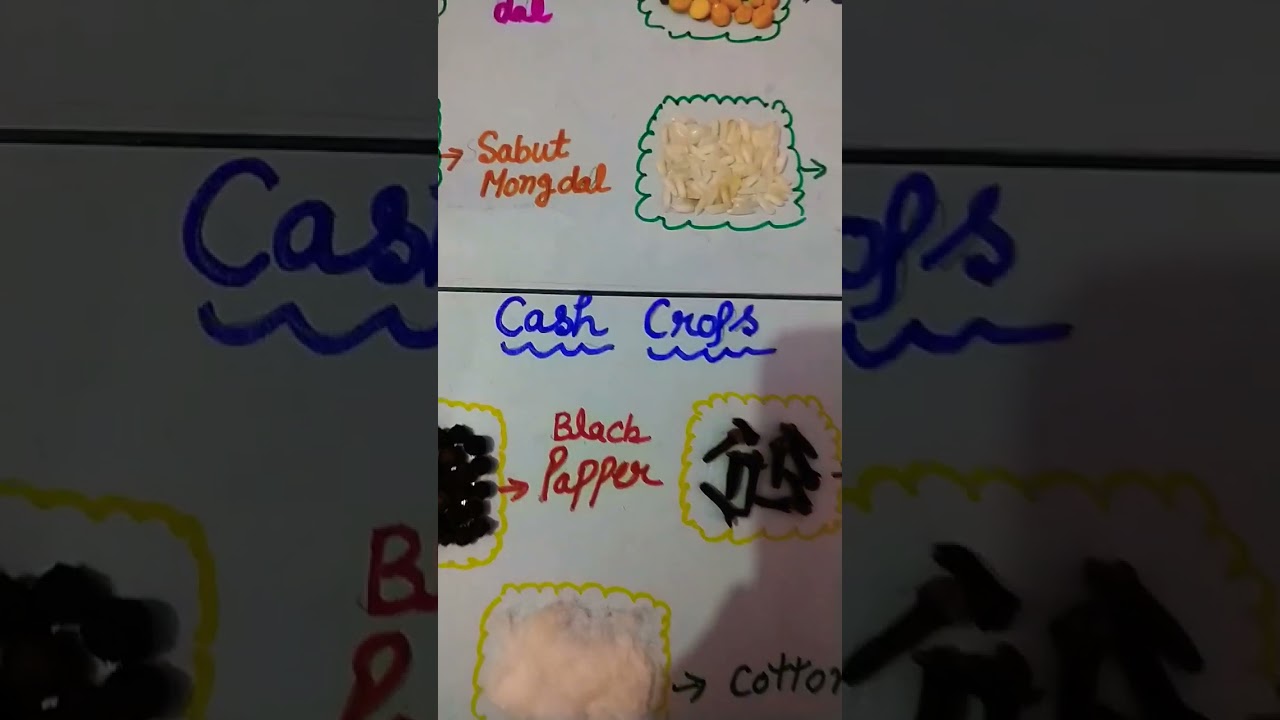 dal
Sabut
Mong dal
Cash Crops
Black
Papper
cotton